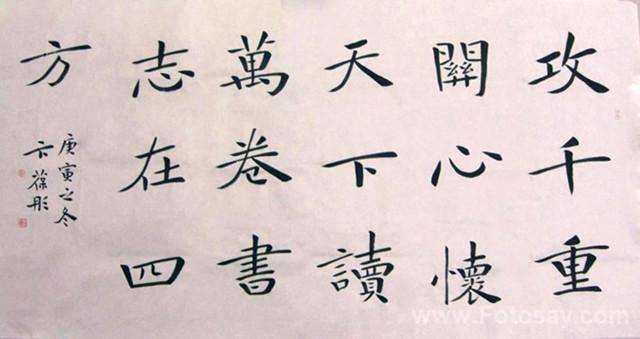 攻千重
關心懷
天下讀
萬卷書
志在四
方
庚寅之冬
卞葆彤
www.Fotosay.com